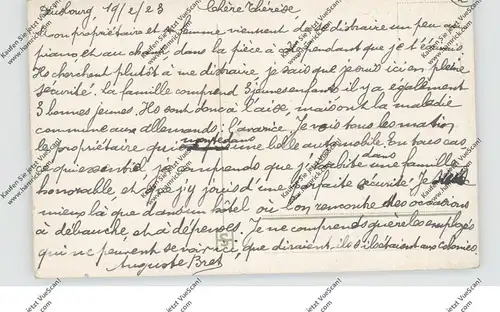 Duisbourg 19/2/23 Chère Thérèse
Mon propriétaire et sa femme viennent de se distraire un peu au
piano et au chant dans la pièce à côté pendant que je t'écrivais
Ils cherchent plutôt à me distraire, je sais que je suis ici en pleine
sécurité. la famille comprend 3 jeunes enfants il y a également
3 bonnes jeunes. Ils sont donc à l'aise, mais ont la maladie
commune aux allemands : l'avarice. Je vois tous les matin
le propriétaire qui monte dans une belle automobile. En tous cas
ce qui essentiel, je comprends que j'habite dans une famille
honorable et que j'y jouis d'une parfaite sécurité. Je suis
mieux là que dans un hôtel où l'on rencontre des occasions
à débauche, et à dépenses. Je ne comprends guère les employés
qui ne peuvent se voir ici, que diraient-ils s'ils étaient aux colonies
Auguste Bret